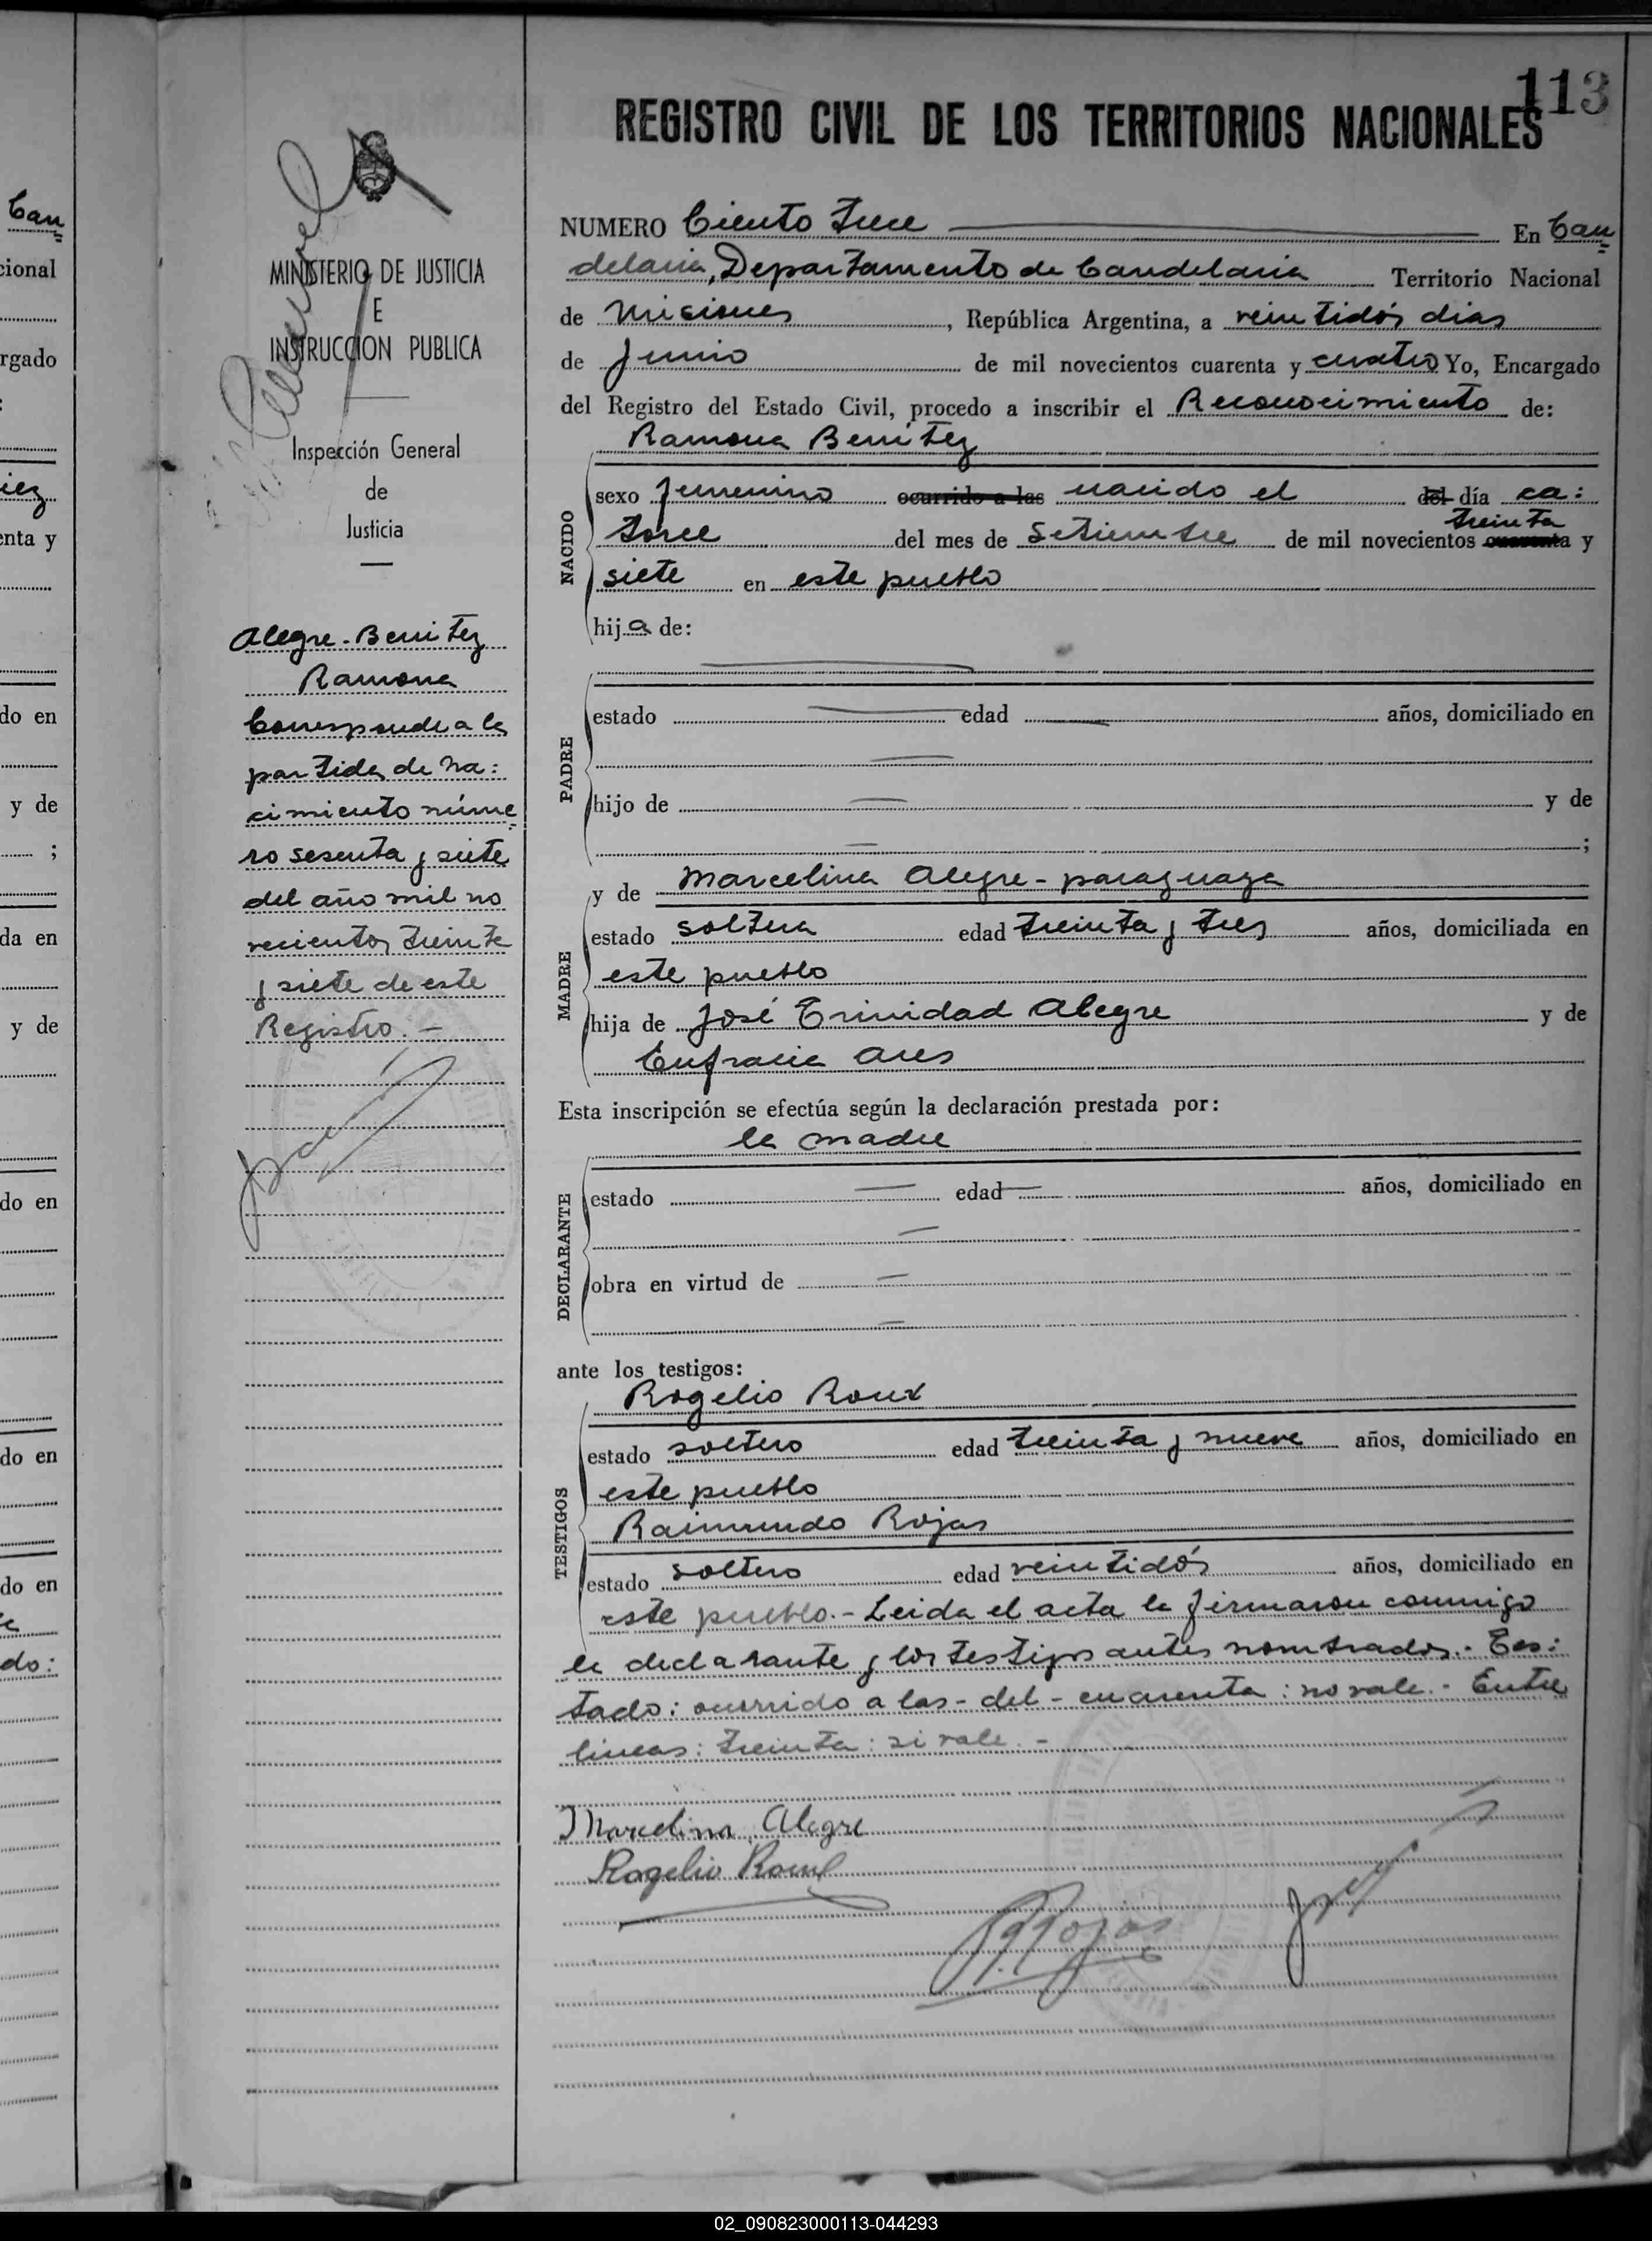 113
REGISTRO CIVIL DE LOS TERRITORIOS NACIONALES
NUMERO Ciento trece En Can=
delaria, Departamento de Candelaria Territorio Nacional
de Misiones, República Argentina, a veintidós dias
de Junio de mil novecientos cuarenta y cuatro Yo, Encargado
del Registro del Estado Civil, procedo a inscribir el Reconocimiento de:
Ramona Benitez
NACIDO
sexo femenino ocurrido a las nacido el del día ca:
torce del mes de Setiembre de mil novecientos cuarenta treinta y
siete en este pueblo
hija de:
PADRE
estado edad años, domiciliado en
hijo de y de
;
y de Marcelina Alegre - paraguaya
MADRE
estado soltera edad treinta y tres años, domiciliada en
este pueblo
hija de José Trinidad Alegre y de
Eufracia Ares
Esta inscripción se efectúa según la declaración prestada por:
la madre
DECLARANTE
estado edad años, domiciliado en
obra en virtud de
ante los testigos:
Rogelio Roux
TESTIGOS
estado soltero edad treinta y nueve años, domiciliado en
este pueblo
Raimundo Rojas
estado soltero edad veintidós años, domiciliado en
este pueblo.- Leida el acta la firmaron conmigo
la declarante y los testigos antes nombrados.- Tes:
tado: ocurrido a las - del - cuarenta: no vale.- Entre
lineas: treinta: si vale.-
Marcelina Alegre
Rogelio Roux
R. Rojas
MINISTERIO DE JUSTICIA
E
INSTRUCCION PUBLICA
Inspección General
de
Justicia
Alegre - Benitez
Ramona
Corresponde a la
partida de na:
cimiento núme=
ro sesenta y siete
del año mil no
vecientos treinta
y siete de este
Registro.-
Can=
cional
rgado
:
iez
enta y
do en
y de
;
da en
y de
do en
do en
do en
do:
02_090823000113-044293